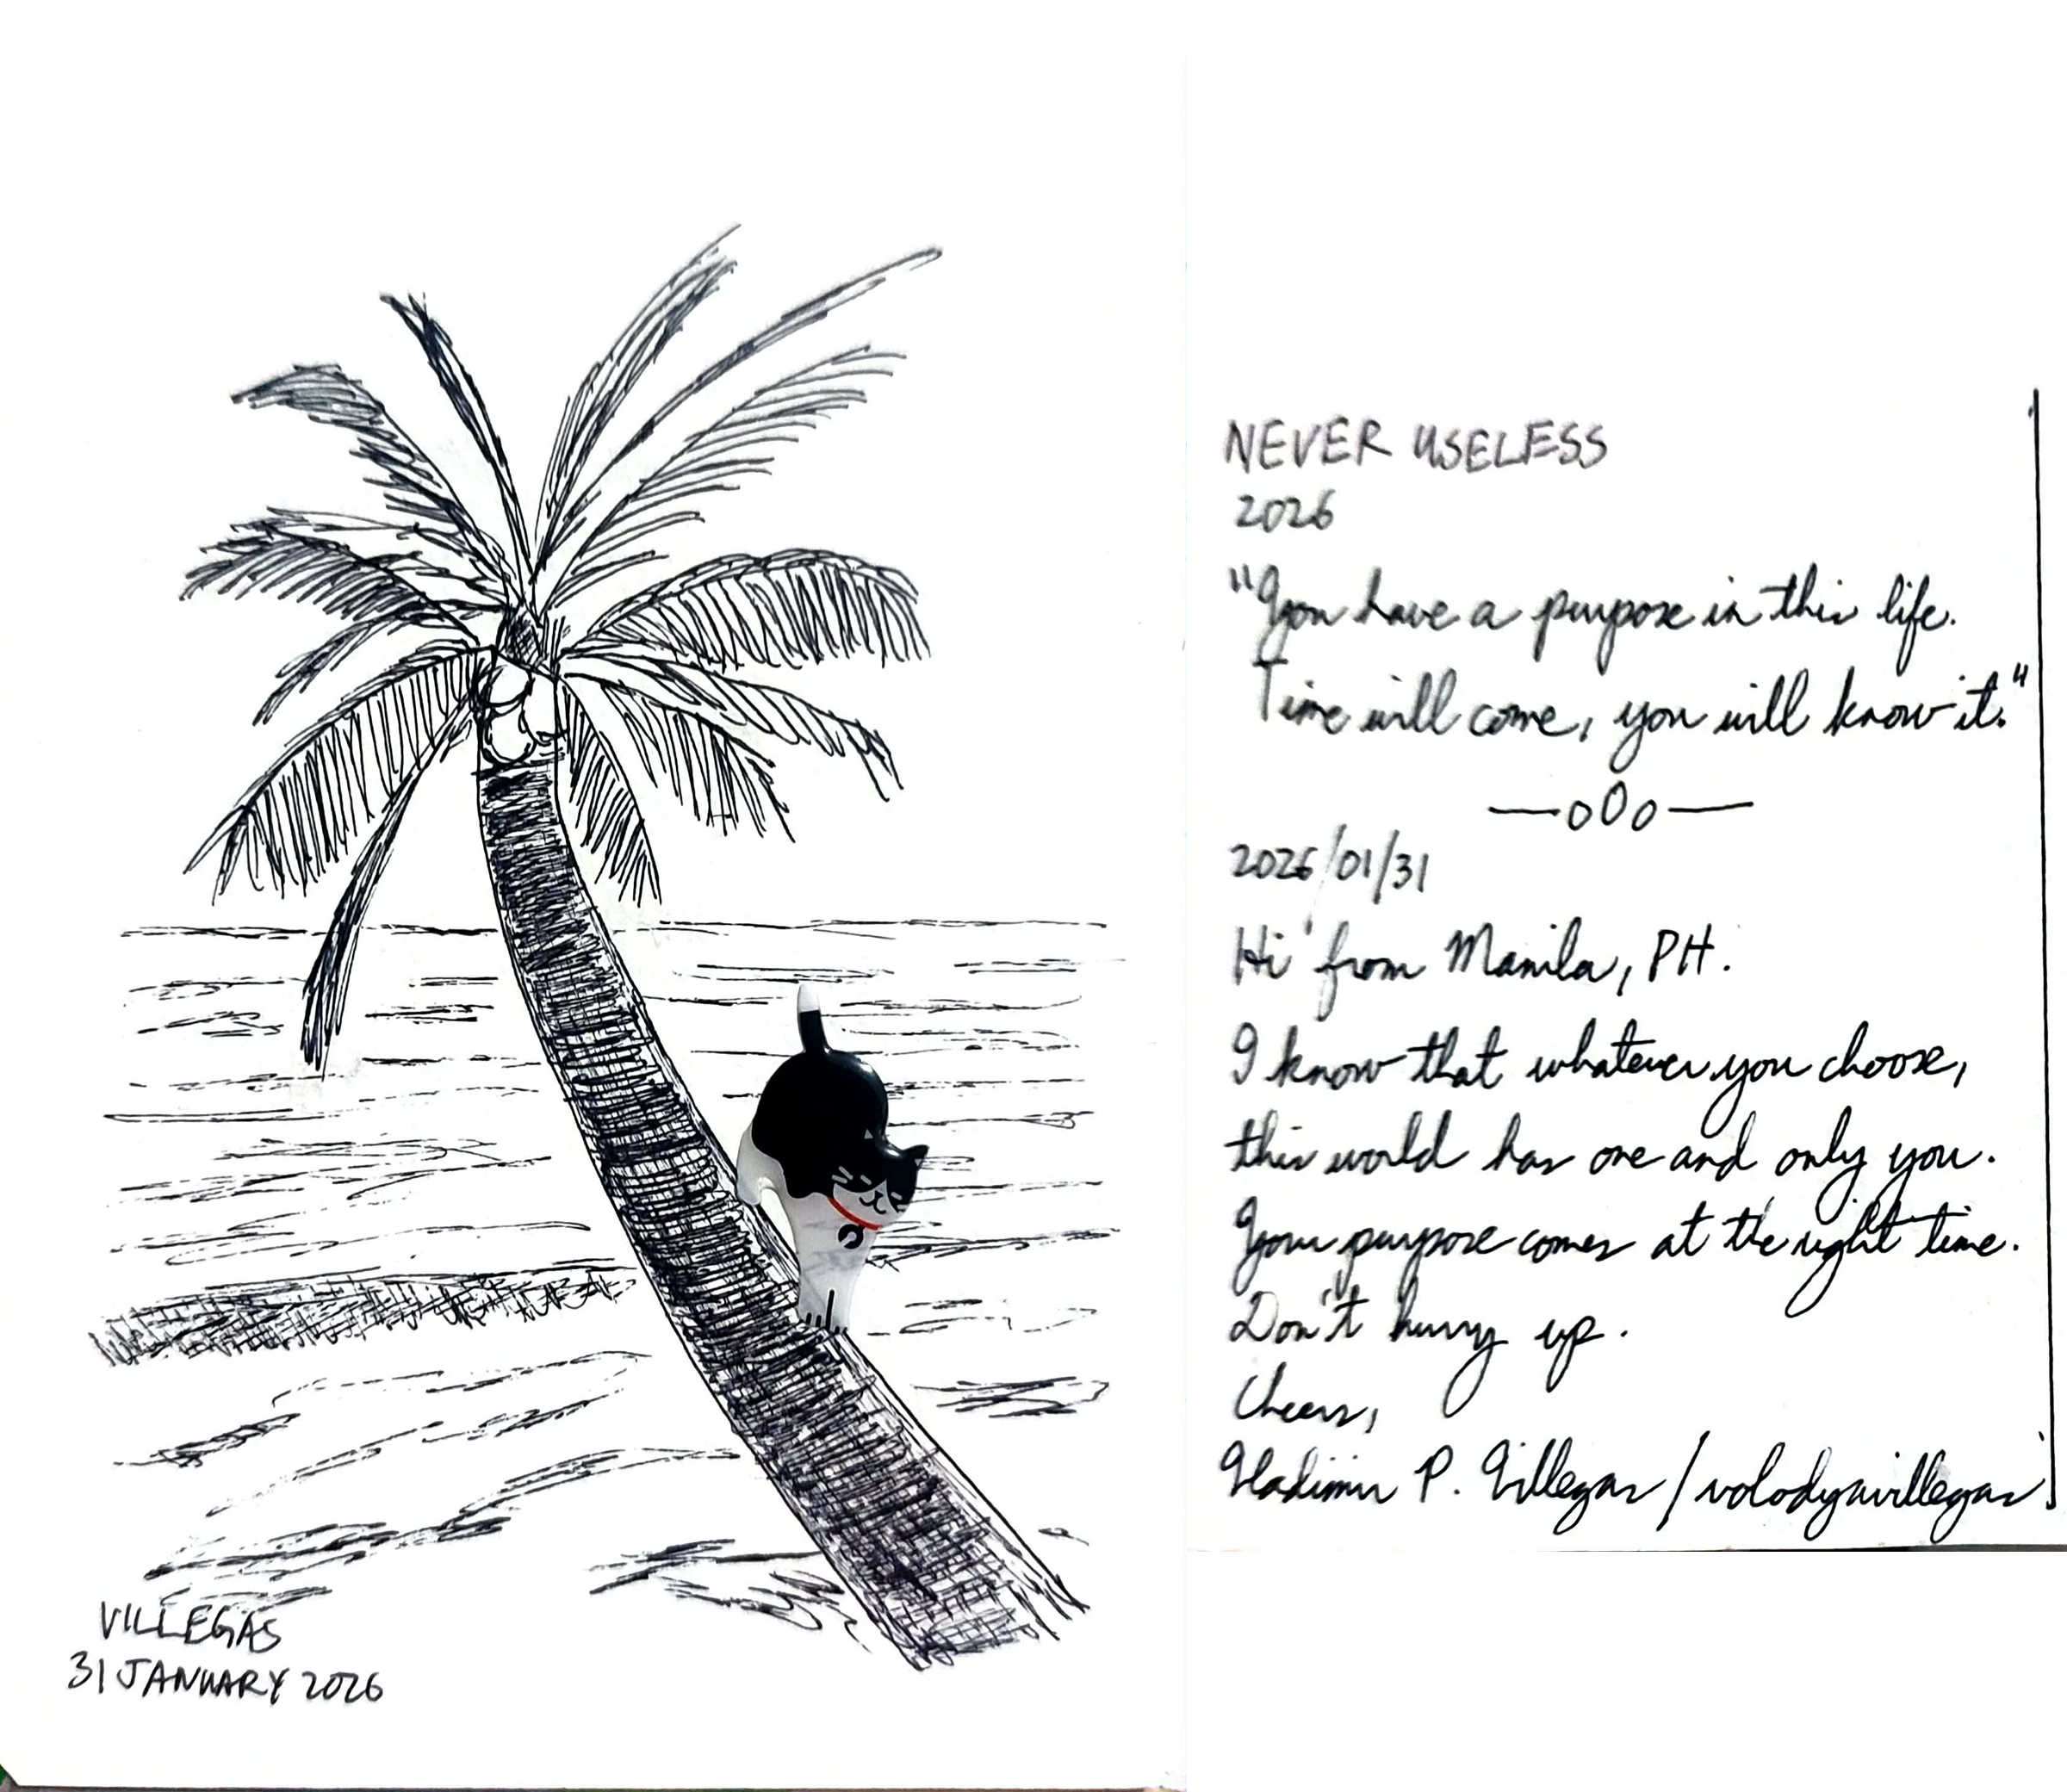 VILLEGAS
31 JANUARY 2026
NEVER USELESS
2026
"You have a purpose in this life.
Time will come, you will know it."
—o0o—
2026/01/31
Hi from Manila, PH.
I know that whatever you choose,
this world has one and only you.
Your purpose comes at the right time.
Don't hurry up.
Cheers,
Vladimir P. Villegas / volodyavillegas